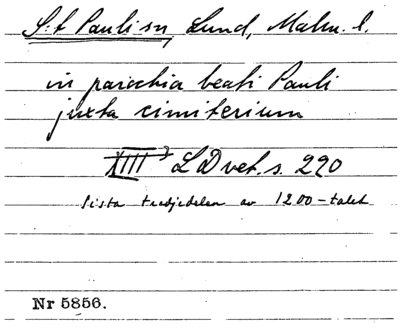 S:t Pauli sn, Lund, Malm. l.
in parochia beati Pauli
juxta cimiterium
XIII 3 LDvet. s. 290
sista tredjedelen av 1200-talet
Nr 5856.